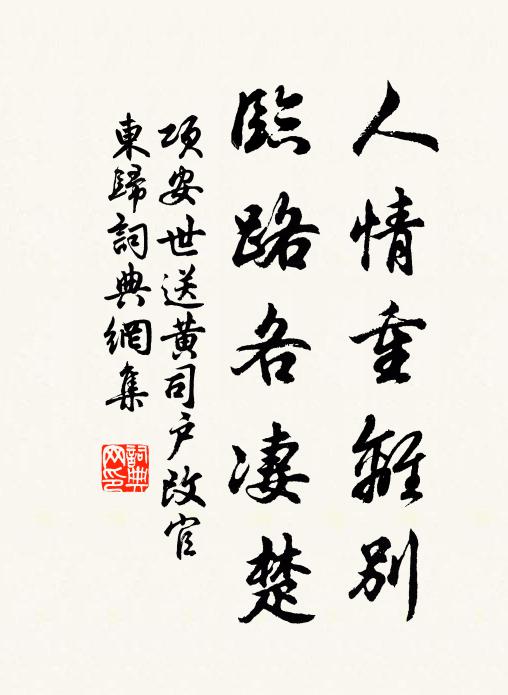 人情重離別
臨路各凄楚
項安世送黄司户改官
東歸詞典網集
詞典网印